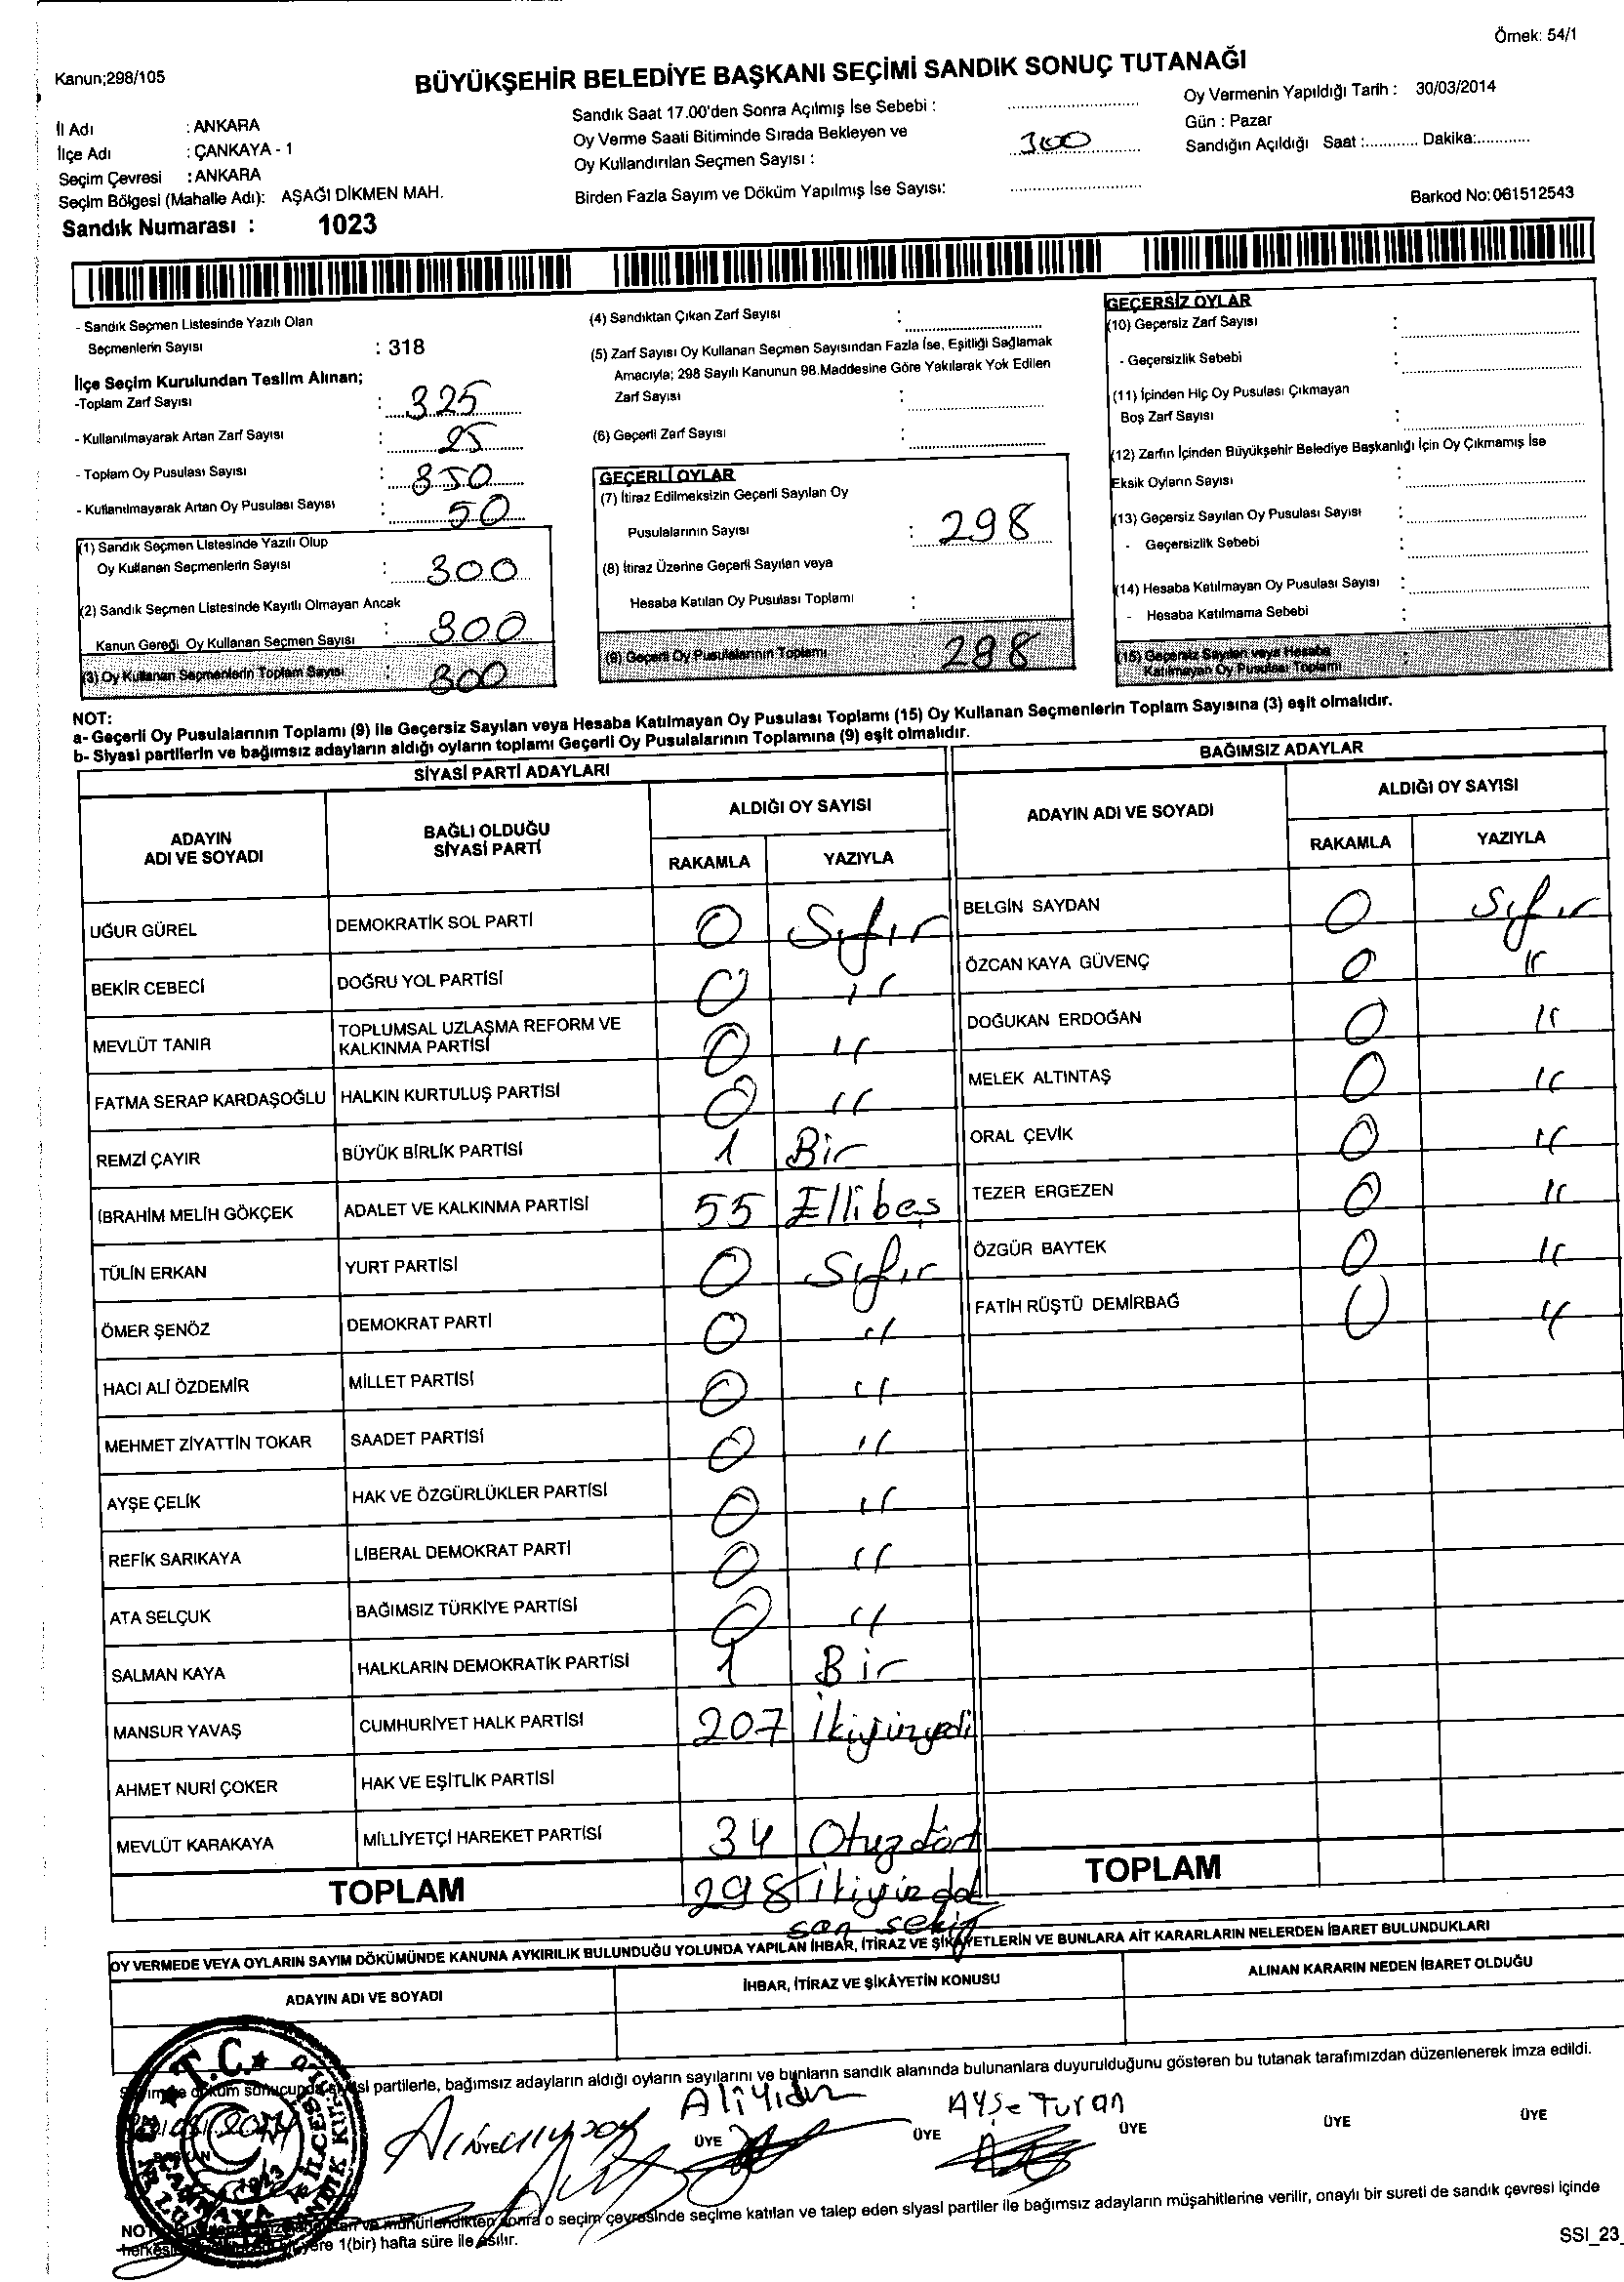 Örnek: 54/1
Kanun;298/105
BÜYÜKŞEHİR BELEDİYE BAŞKANI SEÇİMİ SANDIK SONUÇ TUTANAĞI
İl Adı : ANKARA
İlçe Adı : ÇANKAYA - 1
Seçim Çevresi : ANKARA
Seçim Bölgesi (Mahalle Adı): AŞAĞI DİKMEN MAH.
Sandık Numarası : 1023
Sandık Saat 17.00'den Sonra Açılmış İse Sebebi :
Oy Verme Saati Bitiminde Sırada Bekleyen ve
Oy Kullandırılan Seçmen Sayısı : 300
Birden Fazla Sayım ve Döküm Yapılmış İse Sayısı:
Oy Vermenin Yapıldığı Tarih : 30/03/2014
Gün : Pazar
Sandığın Açıldığı Saat :............ Dakika:............
Barkod No:061512543
- Sandık Seçmen Listesinde Yazılı Olan
Seçmenlerin Sayısı : 318
İlçe Seçim Kurulundan Teslim Alınan;
-Toplam Zarf Sayısı : 325
- Kullanılmayarak Artan Zarf Sayısı : 25
- Toplam Oy Pusulası Sayısı : 350
- Kullanılmayarak Artan Oy Pusulası Sayısı : 50
(1) Sandık Seçmen Listesinde Yazılı Olup
Oy Kullanan Seçmenlerin Sayısı : 300
(2) Sandık Seçmen Listesinde Kayıtlı Olmayan Ancak
Kanun Gereği Oy Kullanan Seçmen Sayısı : 300
(3) Oy Kullanan Seçmenlerin Toplam Sayısı : 300
(4) Sandıktan Çıkan Zarf Sayısı :
(5) Zarf Sayısı Oy Kullanan Seçmen Sayısından Fazla İse, Eşitliği Sağlamak
Amacıyla; 298 Sayılı Kanunun 98.Maddesine Göre Yakılarak Yok Edilen
Zarf Sayısı :
(6) Geçerli Zarf Sayısı :
GEÇERLİ OYLAR
(7) İtiraz Edilmeksizin Geçerli Sayılan Oy
Pusulalarının Sayısı : 298
(8) İtiraz Üzerine Geçerli Sayılan veya
Hesaba Katılan Oy Pusulası Toplamı :
(9) Geçerli Oy Pusulalarının Toplamı : 298
GEÇERSİZ OYLAR
(10) Geçersiz Zarf Sayısı :
- Geçersizlik Sebebi :
(11) İçinden Hiç Oy Pusulası Çıkmayan
Boş Zarf Sayısı :
(12) Zarfın İçinden Büyükşehir Belediye Başkanlığı İçin Oy Çıkmamış İse
Eksik Oyların Sayısı :
(13) Geçersiz Sayılan Oy Pusulası Sayısı :
- Geçersizlik Sebebi :
(14) Hesaba Katılmayan Oy Pusulası Sayısı :
- Hesaba Katılmama Sebebi :
(15) Geçersiz Sayılan veya Hesaba
Katılmayan Oy Pusulası Toplamı :
NOT:
a- Geçerli Oy Pusulalarının Toplamı (9) ile Geçersiz Sayılan veya Hesaba Katılmayan Oy Pusulası Toplamı (15) Oy Kullanan Seçmenlerin Toplam Sayısına (3) eşit olmalıdır.
b- Siyasi partilerin ve bağımsız adayların aldığı oyların toplamı Geçerli Oy Pusulalarının Toplamına (9) eşit olmalıdır.
SİYASİ PARTİ ADAYLARI
ADAYIN ADI VE SOYADI BAĞLI OLDUĞU SİYASİ PARTİ ALDIĞI OY SAYISI
RAKAMLA YAZIYLA
UĞUR GÜREL DEMOKRATİK SOL PARTİ 0 Sıfır
BEKİR CEBECİ DOĞRU YOL PARTİSİ 0 "
MEVLÜT TANIR TOPLUMSAL UZLAŞMA REFORM VE KALKINMA PARTİSİ 0 "
FATMA SERAP KARDAŞOĞLU HALKIN KURTULUŞ PARTİSİ 0 "
REMZİ ÇAYIR BÜYÜK BİRLİK PARTİSİ 1 Bir
İBRAHİM MELİH GÖKÇEK ADALET VE KALKINMA PARTİSİ 55 Ellibeş
TÜLİN ERKAN YURT PARTİSİ 0 Sıfır
ÖMER ŞENÖZ DEMOKRAT PARTİ 0 "
HACI ALİ ÖZDEMİR MİLLET PARTİSİ 0 "
MEHMET ZİYATTİN TOKAR SAADET PARTİSİ 0 "
AYŞE ÇELİK HAK VE ÖZGÜRLÜKLER PARTİSİ 0 "
REFİK SARIKAYA LİBERAL DEMOKRAT PARTİ 0 "
ATA SELÇUK BAĞIMSIZ TÜRKİYE PARTİSİ 0 "
SALMAN KAYA HALKLARIN DEMOKRATİK PARTİSİ 1 Bir
MANSUR YAVAŞ CUMHURİYET HALK PARTİSİ 207 İkiyüzyedi
AHMET NURİ ÇOKER HAK VE EŞİTLİK PARTİSİ
MEVLÜT KARAKAYA MİLLİYETÇİ HAREKET PARTİSİ 34 Otuzdört
TOPLAM 298 İkiyüzdok
san sekiz
BAĞIMSIZ ADAYLAR
ADAYIN ADI VE SOYADI ALDIĞI OY SAYISI
RAKAMLA YAZIYLA
BELGİN SAYDAN 0 Sıfır
ÖZCAN KAYA GÜVENÇ 0 "
DOĞUKAN ERDOĞAN 0 "
MELEK ALTINTAŞ 0 "
ORAL ÇEVİK 0 "
TEZER ERGEZEN 0 "
ÖZGÜR BAYTEK 0 "
FATİH RÜŞTÜ DEMİRBAĞ 0 "
TOPLAM
OY VERMEDE VEYA OYLARIN SAYIM DÖKÜMÜNDE KANUNA AYKIRILIK BULUNDUĞU YOLUNDA YAPILAN İHBAR, İTİRAZ VE ŞİKAYETLERİN VE BUNLARA AİT KARARLARIN NELERDEN İBARET BULUNDUKLARI
ADAYIN ADI VE SOYADI İHBAR, İTİRAZ VE ŞİKÂYETİN KONUSU ALINAN KARARIN NEDEN İBARET OLDUĞU
döküm sonucunda siyasi partilerle, bağımsız adayların aldığı oyların sayılarını ve bunların sandık alanında bulunanlara duyurulduğunu gösteren bu tutanak tarafımızdan düzenlenerek imza edildi.
Ali Yıldız Ayşe Turan
ÜYE ÜYE ÜYE ÜYE ÜYE ÜYE
T.C.
1023
NOT: ve mühürlendikten sonra o seçim çevresinde seçime katılan ve talep eden siyasi partiler ile bağımsız adayların müşahitlerine verilir, onaylı bir sureti de sandık çevresi içinde
yere 1(bir) hafta süre ile asılır.
SSI_23_